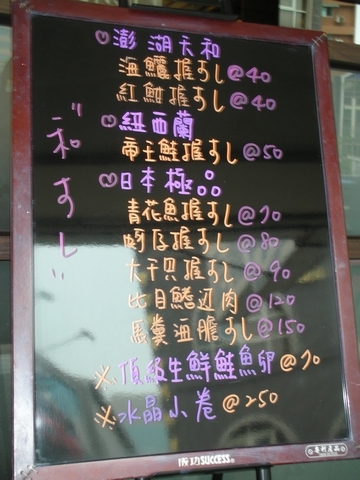 ♡澎湖天和
海鱺握すし@40
紅魽握すし@40
♡紐西蘭
帝王鮭握すし@50
♡日本極品
青花魚握すし@70
蚵仔握すし@80
大干貝握すし@90
比目鰭边肉@120
馬糞海膽すし@150
※頂級生鮮鮭魚卵@70
※水晶小卷@250
"和すし"
成功SUCCESS®
專利產品